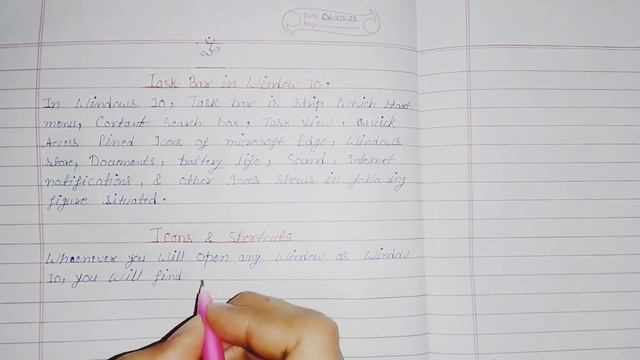 Date: 06-03-24
Page:
Task Bar in Window 10.
In Windows 10, Task bar is strip Which start
menu, Cortant Search box, Task View, Quick
Access Pined Icons of microsoft Edge, Windows
store, Documents, battery life, Sound, Internet
notifications, & other Icons Shows in following
figure situated.
Icons & Shortcuts
Whenever you Will open any Window as Window
10, you Will find